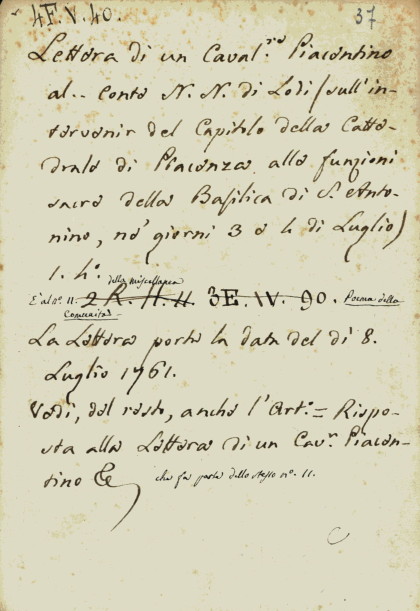 4F.V.40.
37
Lettera di un Caval.ro Piacentino
al.. Conte N. N. di Lodi (sull'in-
tervenir del Capitolo della Catte-
drale di Piacenza alle funzioni
sacre della Basilica di S. Anto-
nino, ne' giorni 3 e 4 di Luglio)
1. h.o
della miscellanea
È al n.o 11. 2 R. II. 11 3E.IV.90. Poema della
Comunità-
La Lettera porta la data del dì 8.
Luglio 1761.
Vedi, del resto, anche l'Art.o = Rispo-
sta alla Lettera di un Cav.r Piacen-
tino &c che fa parte dello stesso n.o 11.